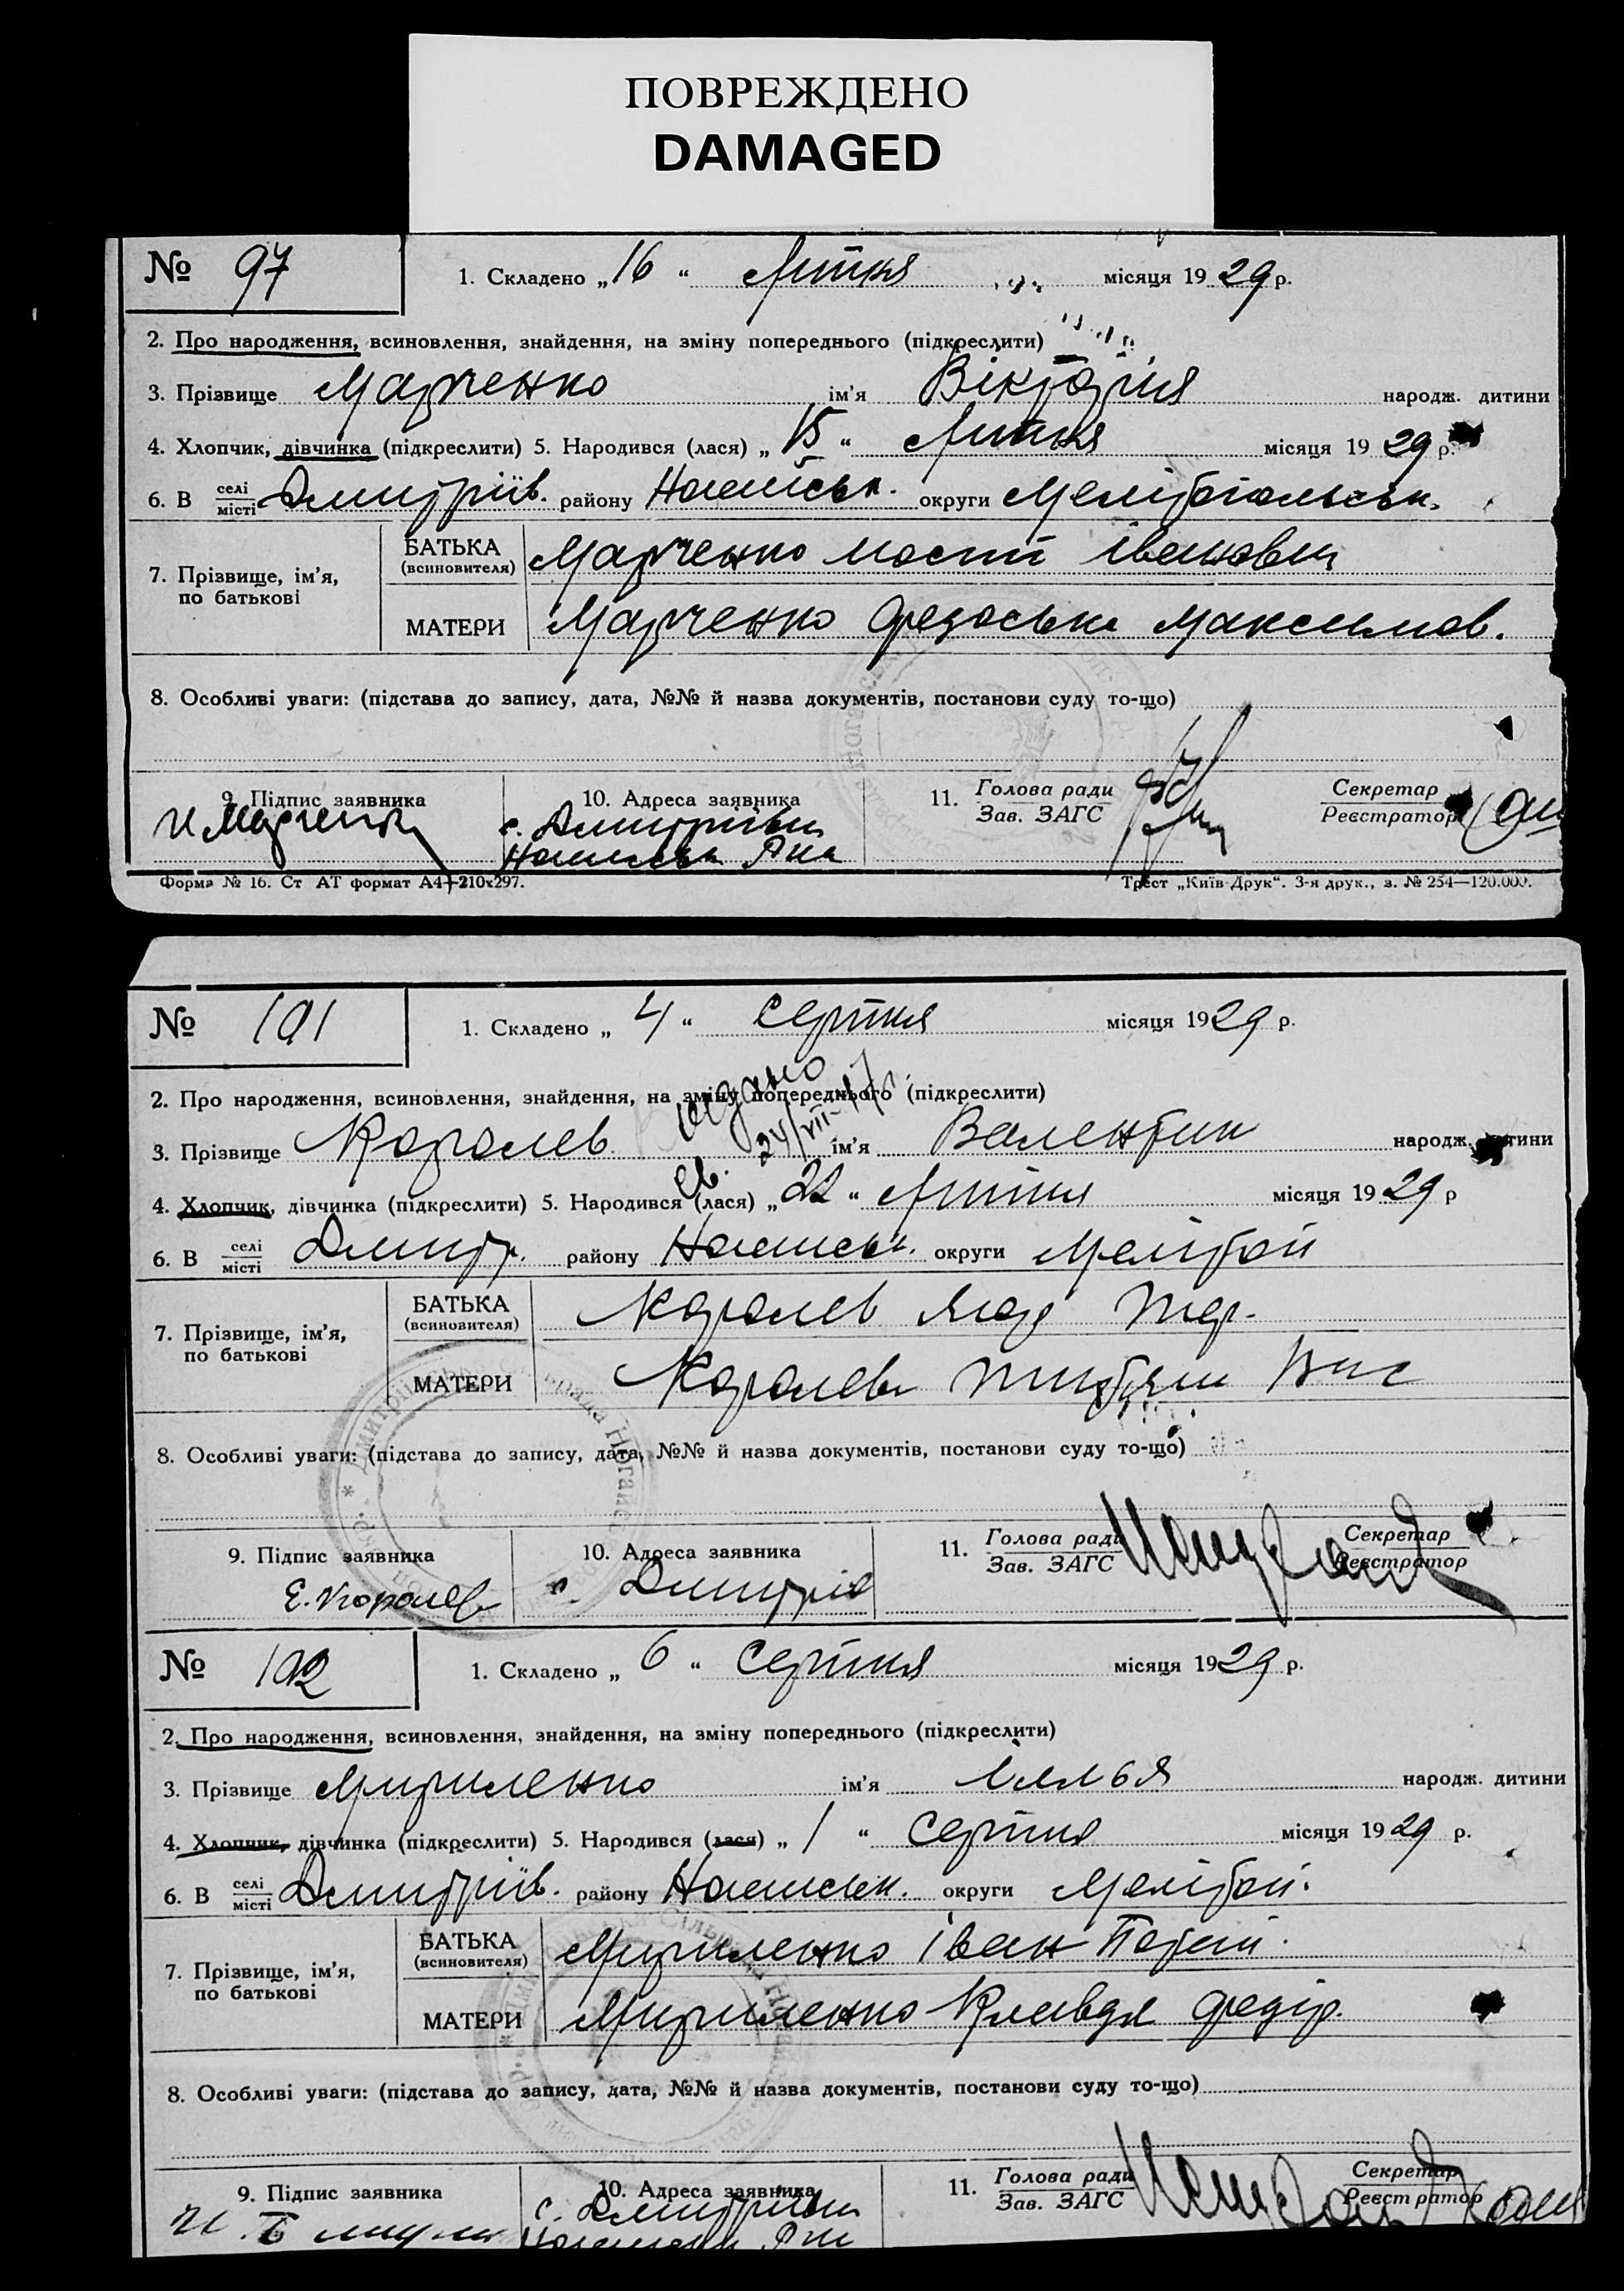 ПОВРЕЖДЕНО
DAMAGED
№ 97 1. Складено „16“ Липня місяця 1929 р.
2. Про народження, всиновлення, знайдення, на зміну попереднього (підкреслити)
3. Прізвище Марченко ім’я Вікторія народж. дитини
4. Хлопчик, дівчинка (підкреслити) 5. Народився (лася) „15“ Липня місяця 1929 р.
6. В селі місті Дмитріїв. району Ногайськ. округи Мелітопольськ.
7. Прізвище, ім’я, по батькові БАТЬКА (всиновителя) Марченко Іванович
МАТЕРИ Марченко Федоська Максимов.
8. Особливі уваги: (підстава до запису, дата, №№ й назва документів, постанови суду то-що)
9. Підпис заявника 10. Адреса заявника 11. Голова ради Зав. ЗАГС Секретар Реєстратор
с. Дмитрівки
Форма № 16. Ст АТ формат А4—210х297. Трест „Київ-Друк“. 3-я друк., з. № 254—120.000.
№ 101 1. Складено „4“ Серпня місяця 1929 р.
2. Про народження, всиновлення, знайдення, на зміну попереднього (підкреслити)
3. Прізвище Королев ім’я Валентин народж. дитини
4. Хлопчик, дівчинка (підкреслити) 5. Народився (лася) „22“ Липня місяця 1929 р
6. В селі місті Дмитр. району Ногайськ. округи Меліто́п
7. Прізвище, ім’я, по батькові БАТЬКА (всиновителя) Королев
МАТЕРИ Королев
8. Особливі уваги: (підстава до запису, дата, №№ й назва документів, постанови суду то-що)
9. Підпис заявника 10. Адреса заявника 11. Голова ради Зав. ЗАГС Секретар Реєстратор
Е. Королев с. Дмитрів
№ 102 1. Складено „6“ Серпня місяця 1929 р.
2. Про народження, всиновлення, знайдення, на зміну попереднього (підкреслити)
3. Прізвище Мириленко ім’я народж. дитини
4. Хлопчик, дівчинка (підкреслити) 5. Народився (лася) „1“ Серпня місяця 1929 р.
6. В селі місті Дмитріїв. району Ногайськ. округи Мелітоп.
7. Прізвище, ім’я, по батькові БАТЬКА (всиновителя) Мириленко Іван
МАТЕРИ Мириленко Клавдя Федір.
8. Особливі уваги: (підстава до запису, дата, №№ й назва документів, постанови суду то-що)
9. Підпис заявника 10. Адреса заявника 11. Голова ради Зав. ЗАГС Секретар Реєстратор
с. Дмитрівки